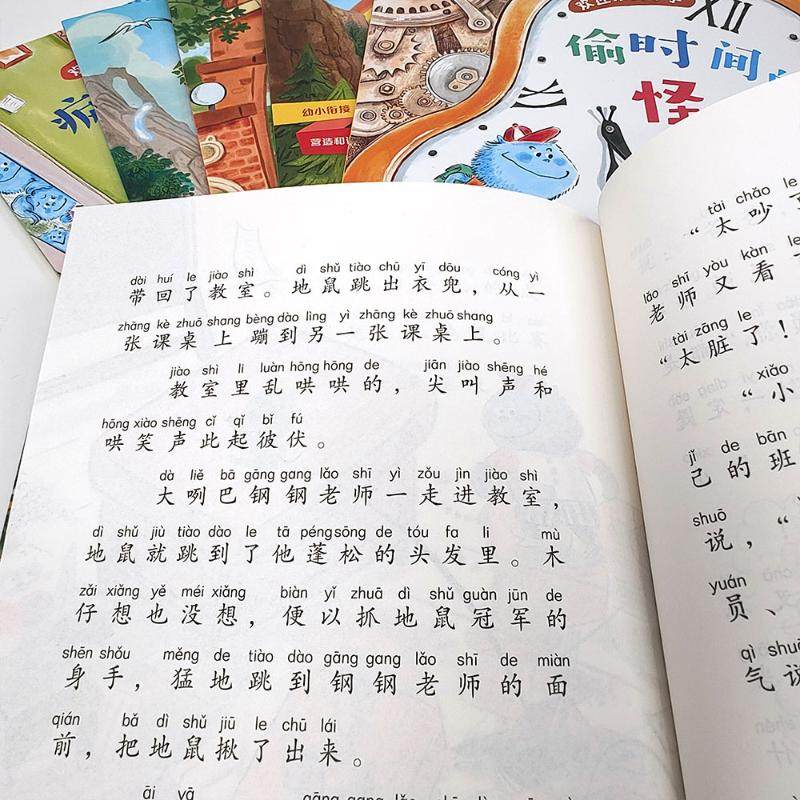 XII
偷时间
怪
幼小衔接
dài huí le jiào shì dì shǔ tiào chū yī dōu cóng yì
带回了教室。地鼠跳出衣兜，从一
zhāng kè zhuō shang bèng dào lìng yì zhāng kè zhuō shang
张课桌上蹦到另一张课桌上。
jiào shì li luàn hōng hōng de jiān jiào shēng hé
教室里乱哄哄的，尖叫声和
hōng xiào shēng cǐ qǐ bǐ fú
哄笑声此起彼伏。
dà liě bā gāng gang lǎo shī yì zǒu jìn jiào shì
大咧巴钢钢老师一走进教室，
dì shǔ jiù tiào dào le tā péng sōng de tóu fa li mù
地鼠就跳到了他蓬松的头发里。木
zǎi xiǎng yě méi xiǎng biàn yǐ zhuā dì shǔ guàn jūn de
仔想也没想，便以抓地鼠冠军的
shēn shǒu měng de tiào dào gāng gang lǎo shī de miàn
身手，猛地跳到钢钢老师的面
qián bǎ dì shǔ jiū le chū lái
前，把地鼠揪了出来。
āi yā gāng gang lǎo shī de
tài chǎo le
“太吵了
lǎo shī yòu kàn le
老师又看了
tài zāng le
“太脏了！
xiǎo
“小
jǐ de bān
己的班
shuō
说，“
yuán
员、
qì shuō
气说